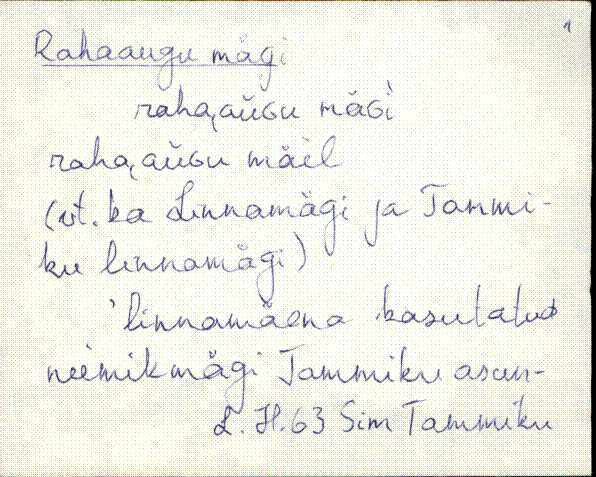 1
Rahaaugu mägi
raha,aùɢu mäɢì
raha,aùɢu mäel
(vt. ka Linnamägi ja Tammi-
ku linnamägi)
'linnamäena kasutatud
neemikmägi Tammiku asun-
L. H.63 Sim Tammiku